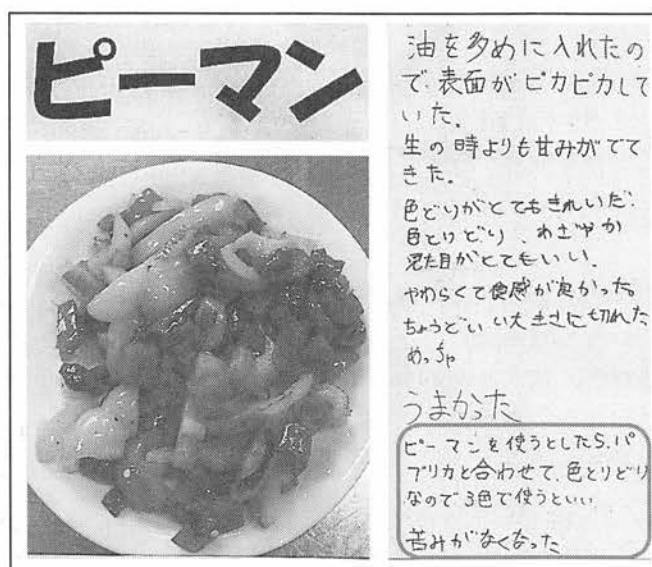 ピーマン
油を多めに入れたの
で、表面がピカピカして
いた。
生の時よりも甘みがでて
きた。
色どりがとてもきれいだ。
色とりどり、あざやか
見た目がとてもいい、
やわらくて食感が良かった。
ちょうどいい大きさに切れた
めっちゃ
うまかった
ピーマンを使うとしたら、パ
プリカと合わせて、色とりどり
なので3色で使うといい
苦みがなくなった